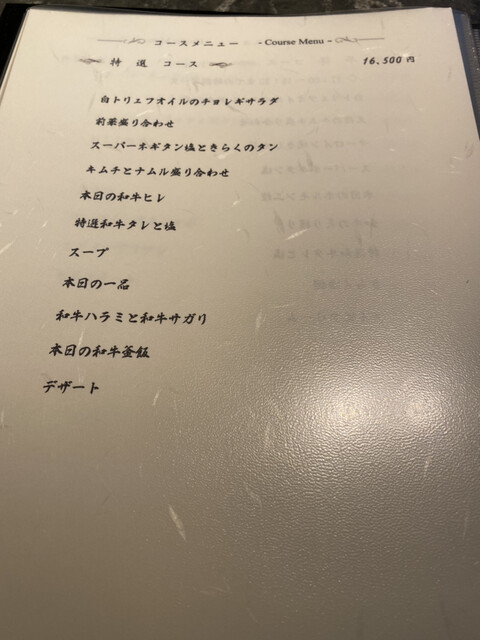 コースメニュー - Course Menu -
特 選 コース 16,500 円
白トリュフオイルのチョレギサラダ
前菜盛り合わせ
スーパーネギタン塩ときらくのタン
キムチとナムル盛り合わせ
本日の和牛ヒレ
特選和牛タレと塩
スープ
本日の一品
和牛ハラミと和牛サガリ
本日の和牛釜飯
デザート